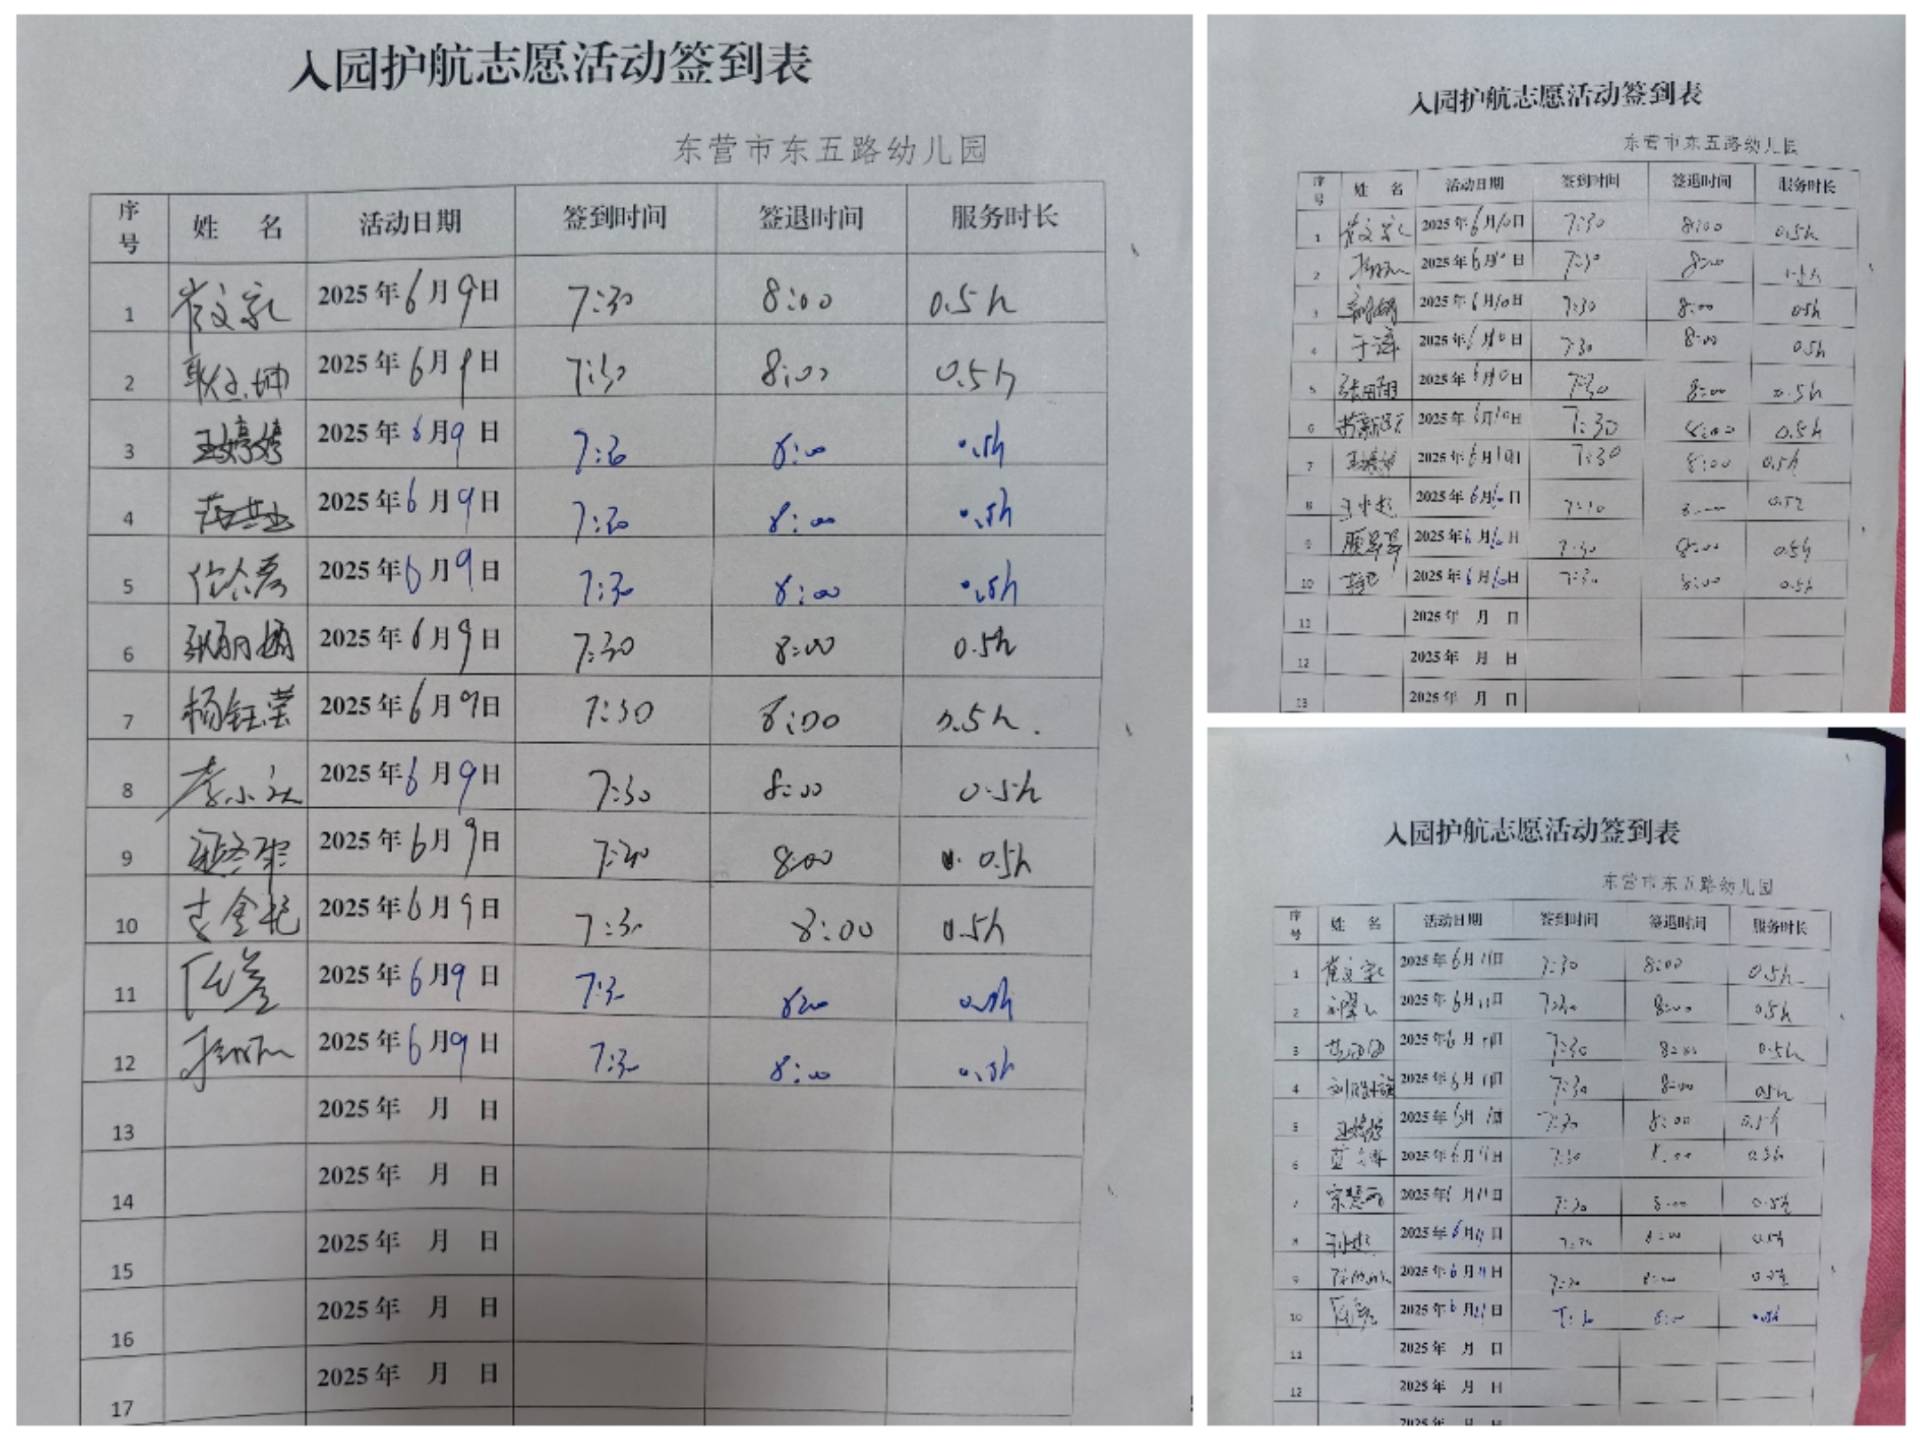 入园护航志愿活动签到表
东营市东五路幼儿园
序号 姓 名 活动日期 签到时间 签退时间 服务时长
1 崔文家 2025年6月9日 7:30 8:00 0.5h
2 2025年6月9日 7:30 8:00 0.5h
3 王婷婷 2025年6月9日 7:30 8:00 0.5h
4 2025年6月9日 7:30 8:00 0.5h
5 2025年6月9日 7:30 8:00 0.5h
6 张丽娟 2025年6月9日 7:30 8:00 0.5h
7 杨钰莹 2025年6月9日 7:30 8:00 0.5h.
8 李小 2025年6月9日 7:30 8:00 0.5h
9 2025年6月9日 7:30 8:00 0.5h
10 2025年6月9日 7:30 8:00 0.5h
11 2025年6月9日 7:30 8:00 0.5h
12 2025年6月9日 7:30 8:00 0.5h
13 2025年 月 日
14 2025年 月 日
15 2025年 月 日
16 2025年 月 日
17 2025年 月 日
入园护航志愿活动签到表
东营市东五路幼儿园
序号 姓 名 活动日期 签到时间 签退时间 服务时长
1 崔文家 2025年6月10日 7:30 8:00 0.5h
2 2025年6月10日 7:30 8:00
3 2025年6月10日 7:30 8:00 0.5h
4 于 2025年6月10日 7:30 8:00 0.5h
5 2025年6月10日 7:30 8:00 0.5h
6 2025年6月10日 7:30 8:00 0.5h
7 王婷婷 2025年6月10日 7:30 8:00 0.5h
8 2025年6月10日 7:30 8:00 0.5h
9 2025年6月10日 7:30 8:00 0.5h
10 2025年6月10日 7:30 8:00 0.5h
11 2025年 月 日
12 2025年 月 日
13 2025年 月 日
入园护航志愿活动签到表
东营市东五路幼儿园
序号 姓 名 活动日期 签到时间 签退时间 服务时长
1 崔文家 2025年6月11日 7:30 8:00 0.5h
2 2025年6月11日 7:30 8:00 0.5h
3 2025年6月11日 7:30 8:00 0.5h
4 2025年6月11日 7:30 8:00 0.5h
5 王婷婷 2025年6月11日 7:30 8:00 0.5h
6 2025年6月11日 7:30 8:00 0.5h
7 宗慧 2025年6月11日 7:30 8:00 0.5h
8 2025年6月11日 7:30 8:00 0.5h
9 2025年6月11日 7:30 8:00 0.5h
10 2025年6月11日 7:30 8:00 0.5h
11 2025年 月 日
12 2025年 月 日
2025年 月 日